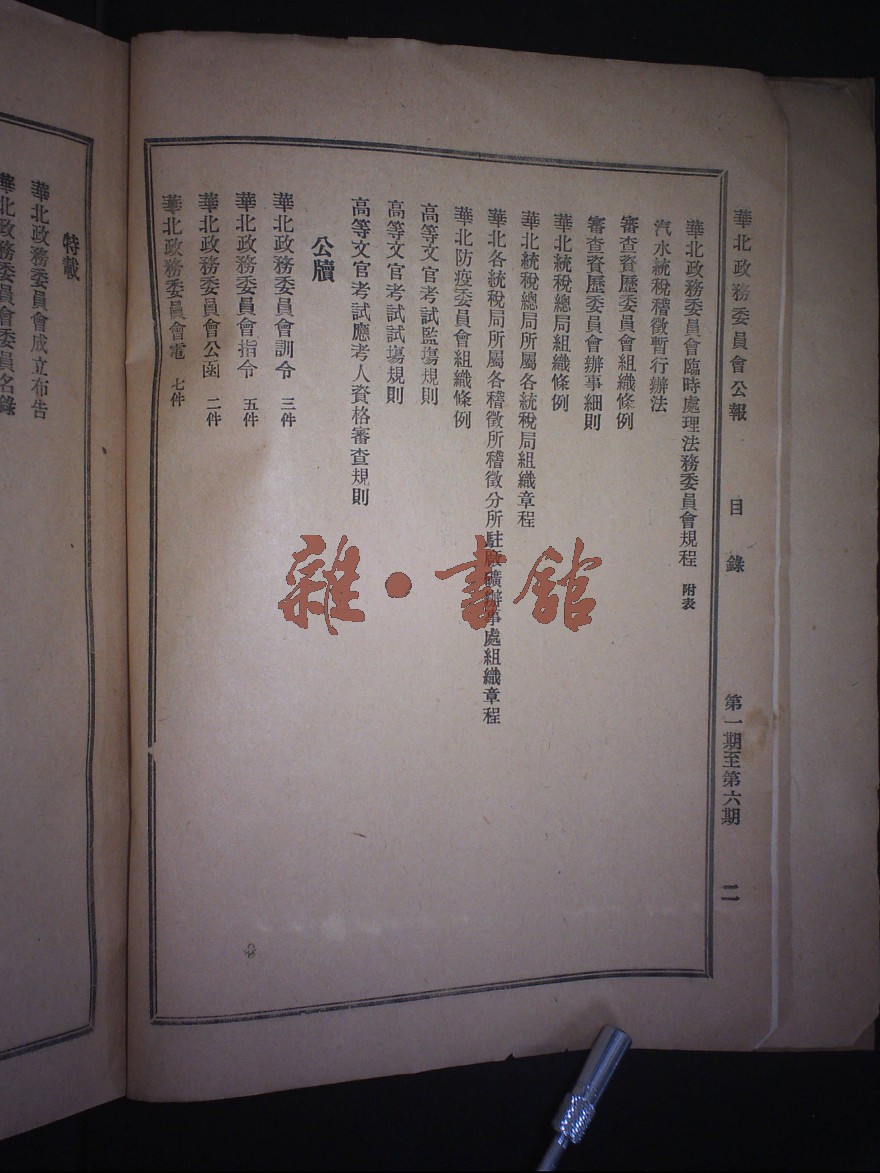 華北政務委員會公報 目錄 第一期至第六期 二
華北政務委員會臨時處理法務委員會規程 附表
汽水統稅稽徵暫行辦法
審查資歷委員會組織條例
審查資歷委員會辦事細則
華北統稅總局組織條例
華北統稅總局所屬各統稅局組織章程
華北各統稅局所屬各稽徵所稽徵分所駐廠礦辦事處組織章程
華北防疫委員會組織條例
高等文官考試監塲規則
高等文官考試試塲規則
高等文官考試應考人資格審查規則
公牘
華北政務委員會訓令 三件
華北政務委員會指令 五件
華北政務委員會公函 二件
華北政務委員會電 七件
特載
華北政務委員會成立布告
華北政務委員會委員名錄
雜·書館